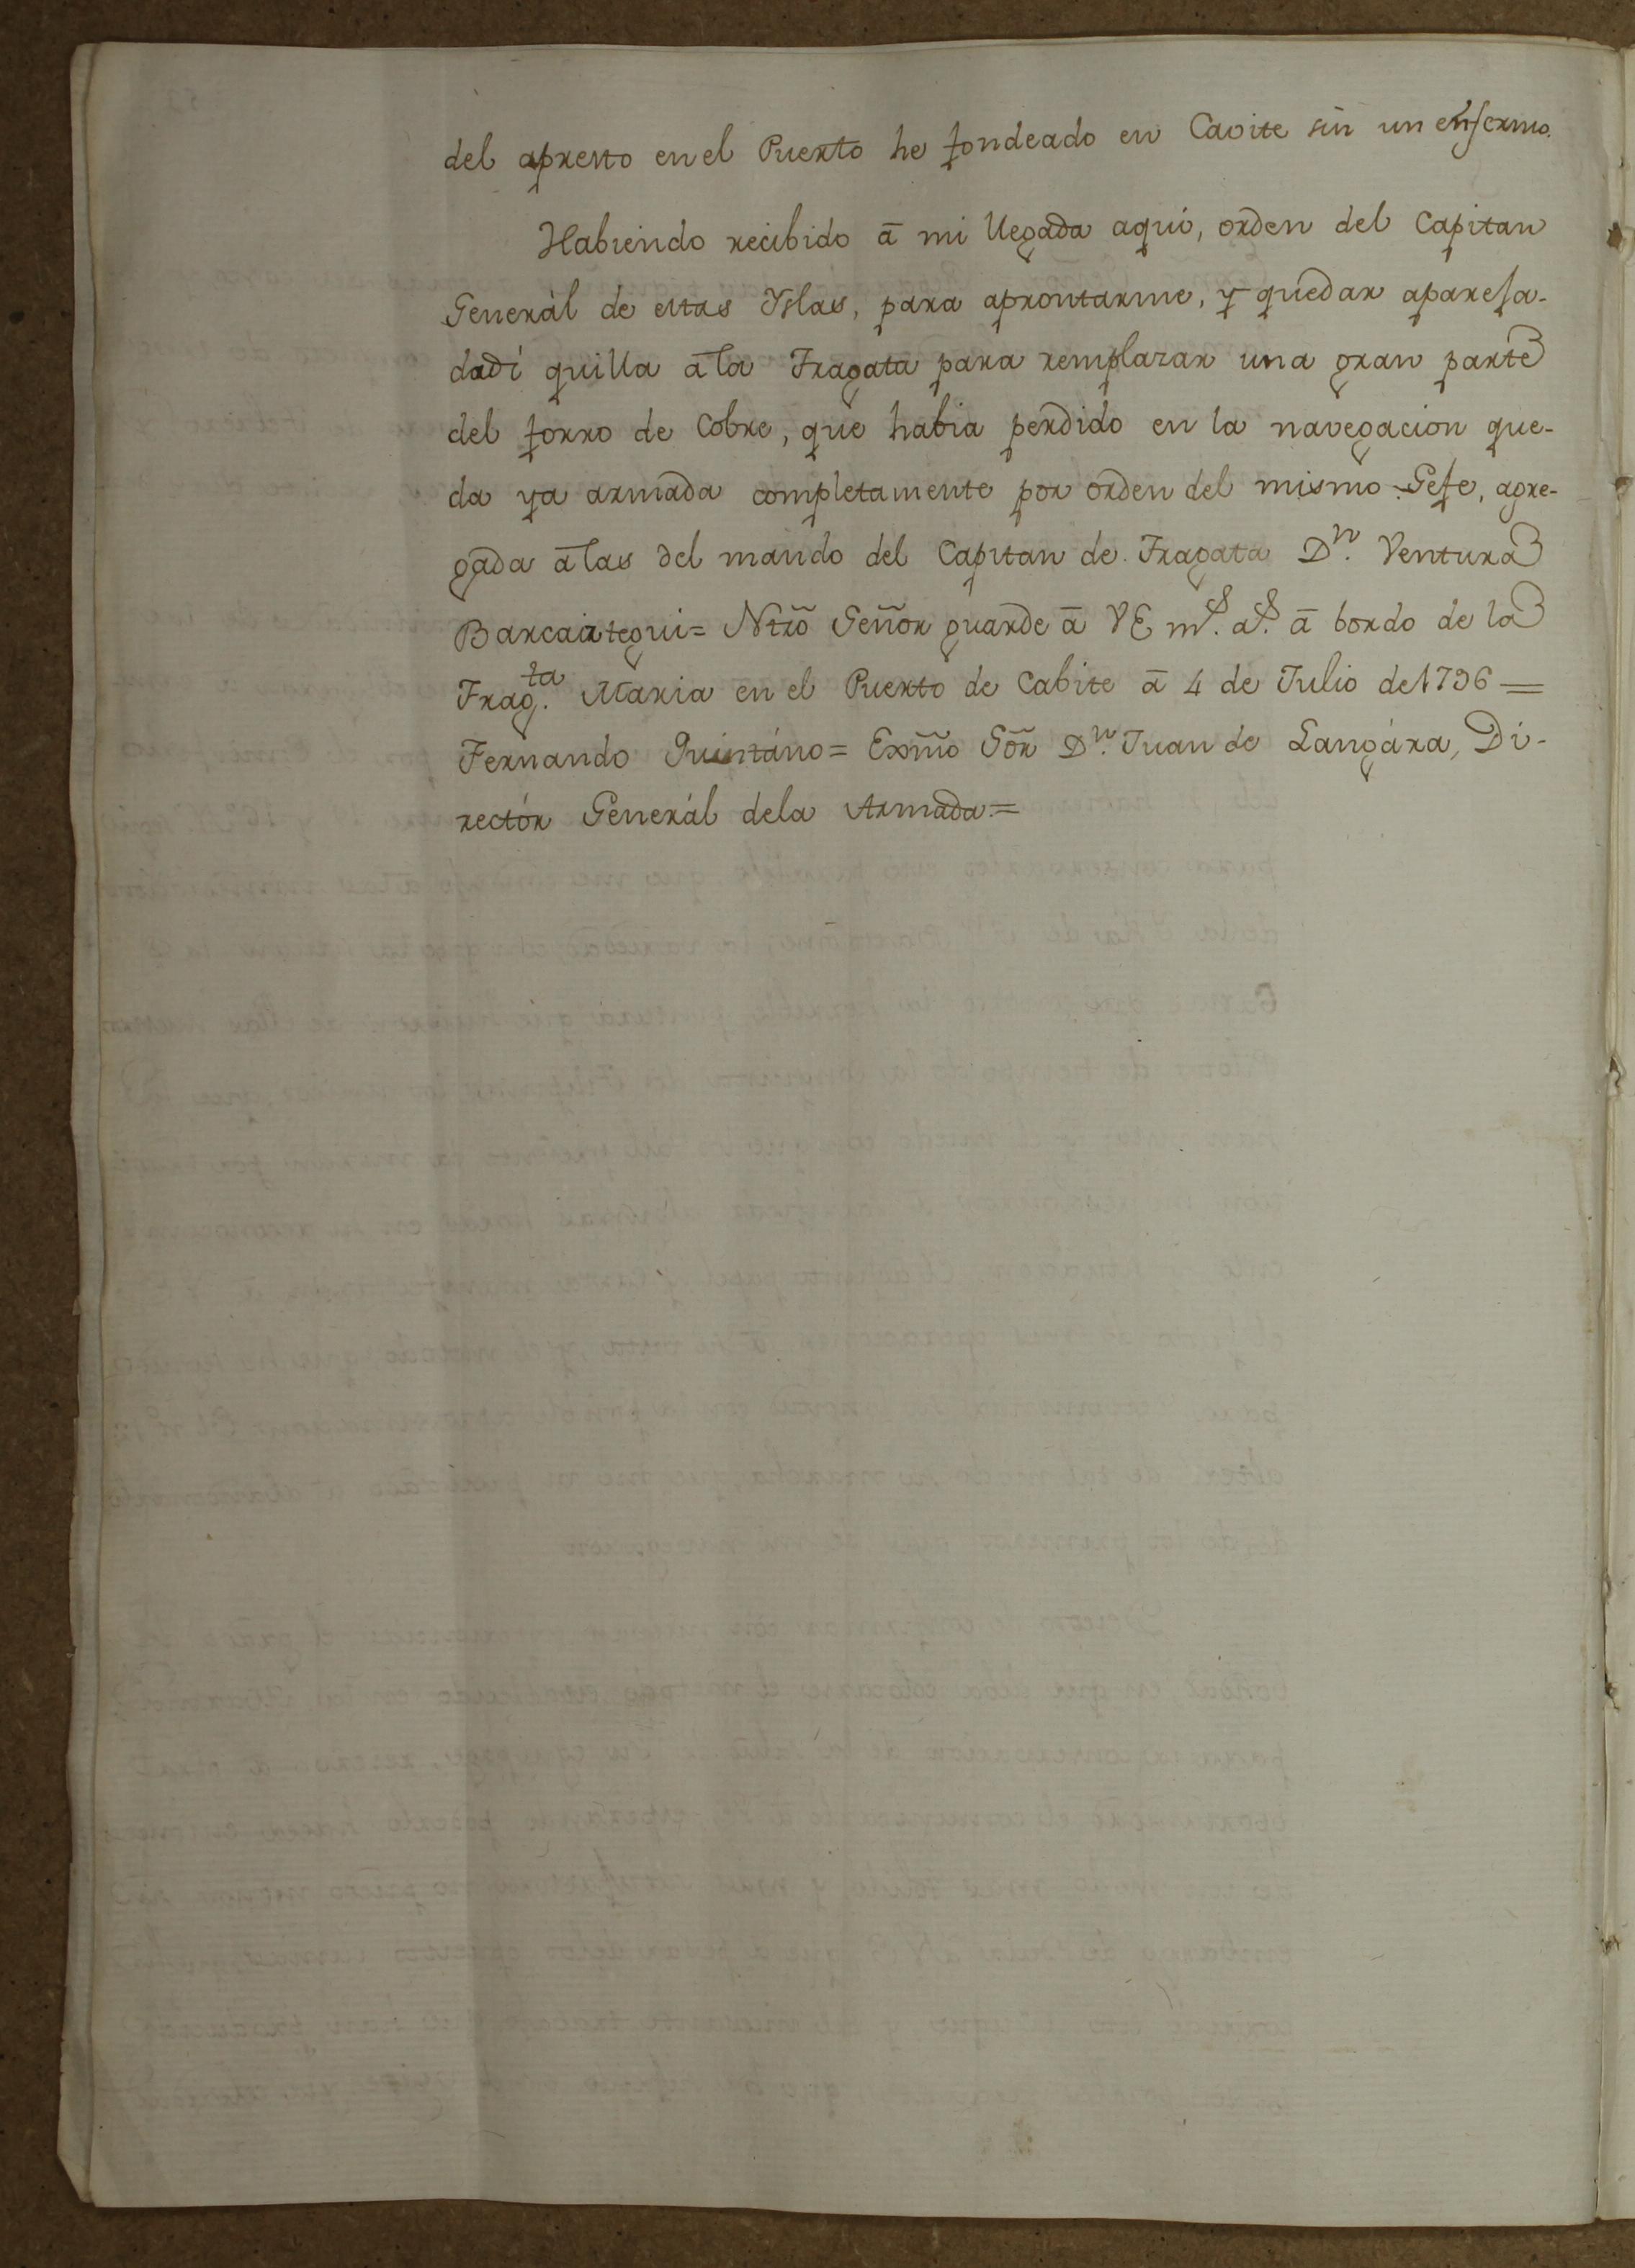 del apresto en el Puerto he fondeado en Cavite sin un enfermo.
Habiendo recibido â mi llegada aqui, orden del Capitan
Generál de estas Yslas, para aprontarme, y quedar apareja-
da di quilla âla Fragata para remplazar una gran parte
del forro de Cobre, que habia perdido en la navegacion que-
da ya armada completamente por orden del mismo Gefe, agre-
gada âlas del mando del Capitan de Fragata Dn. Ventura
Barcaiztegui= Ntrõ Señor guarde â VE ms. as. â bordo de la
Fragta. Maria en el Puerto de Cabite â 4 de Julio de 1796=
Fernando Quintáno= Exm̃o Sõr Dn. Juan de Langára, Di-
rectór Generál dela Armada.=